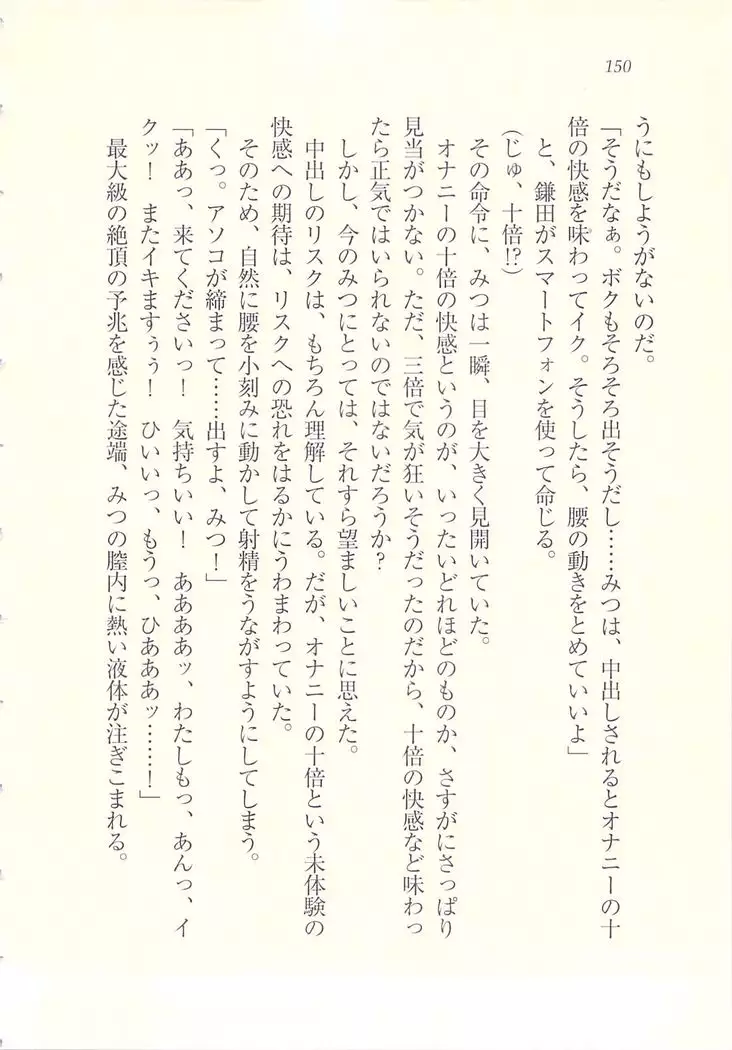 150
うにもしようがないのだ。
「そうだなぁ。ボクもそろそろ出そうだし……みつは、中出しされるとオナニーの十
倍の快感を味わってイク。そうしたら、腰の動きをとめていいよ」
と、鎌田がスマートフォンを使って命じる。
(じゅ、十倍!?)
その命令に、みつは一瞬、目を大きく見開いていた。
オナニーの十倍の快感というのが、いったいどれほどのものか、さすがにさっぱり
見当がつかない。ただ、三倍で気が狂いそうだったのだから、十倍の快感など味わっ
たら正気ではいられないのではないだろうか?
しかし、今のみつにとっては、それすら望ましいことに思えた。
中出しのリスクは、もちろん理解している。だが、オナニーの十倍という未体験の
快感への期待は、リスクへの恐れをはるかにうわまわっていた。
そのため、自然に腰を小刻みに動かして射精をうながすようにしてしまう。
「くっ。アソコが締まって……出すよ、みつ!」
「ああっ、来てくださいっ! 気持ちいい! ああああッ、わたしもっ、あんっ、イ
クッ! またイキますぅぅ! ひいいっ、もうっ、ひあああッ……!」
最大級の絶頂の予兆を感じた途端、みつの膣内に熱い液体が注ぎこまれる。